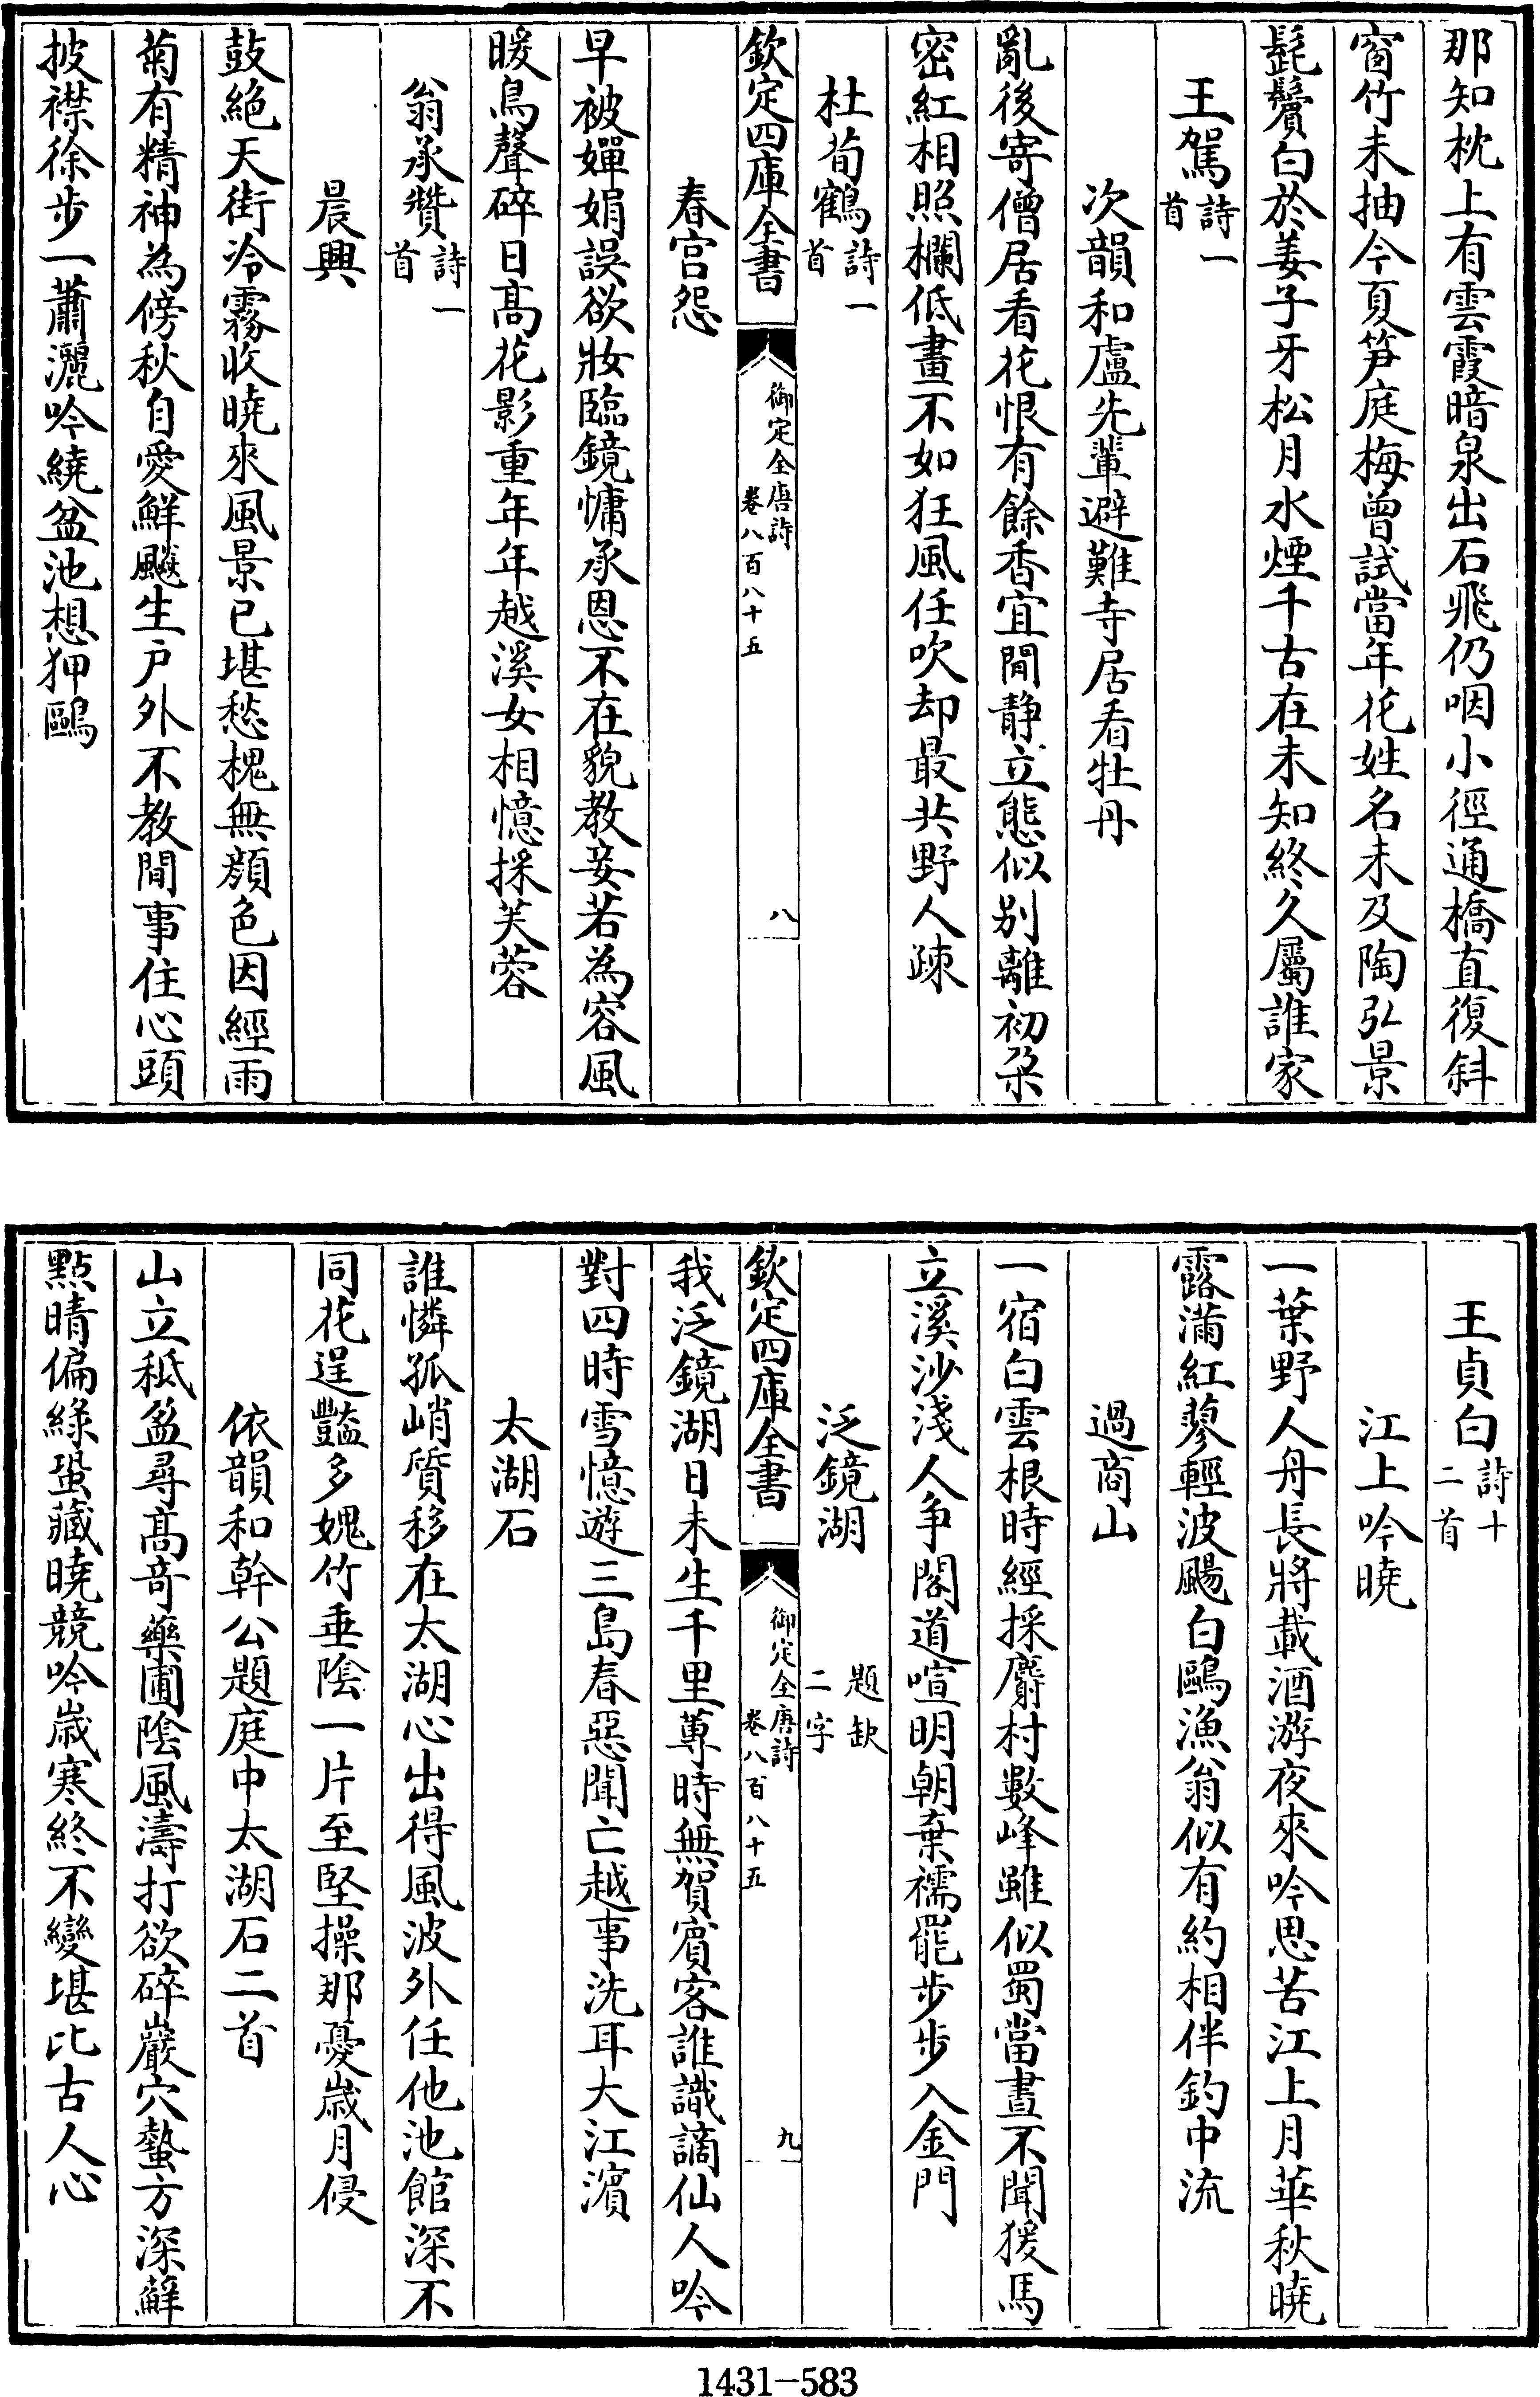 那知枕上有雲霞暗泉出石飛仍咽小徑通橋直復斜
窗竹未抽今夏笋庭梅曾試當年花姓名未及陶弘景
髭鬢白於姜子牙松月水煙千古在未知終久屬誰家
王駕詩一首
次韻和盧先輩避難寺居看牡丹
亂後寄僧居看花恨有餘香宜閒静立態似别離初朶
密紅相照欄低畫不如狂風任吹却最共野人疎
杜荀鶴詩一首
欽定四庫全書
御定全唐詩
卷八百八十五
八
春宫怨
早被嬋娟誤欲妝臨鏡慵承恩不在貌教妾若為容風
暖鳥聲碎日高花影重年年越溪女相憶採芙蓉
翁承贊詩一首
晨興
鼓絶天街冷霧收曉來風景已堪愁槐無顔色因經雨
菊有精神為傍秋自愛鮮飈生户外不教閒事住心頭
披襟徐步一蕭灑吟繞盆池想狎鷗
王貞白詩十二首
江上吟曉
一葉野人舟長將載酒游夜來吟思苦江上月華秋曉
露滿紅蓼輕波颺白鷗漁翁似有約相伴釣中流
過商山
一宿白雲根時經採麝村數峰雖似蜀當晝不聞猨馬
立溪沙淺人争閣道喧明朝棄襦罷步步入金門
泛鏡湖題缺二字
欽定四庫全書
御定全唐詩
卷八百八十五
九
我泛鏡湖日未生千里蓴時無賀賓客誰識謫仙人吟
對四時雪憶遊三島春惡聞亡越事洗耳大江濱
太湖石
誰憐孤峭質移在太湖心出得風波外任他池館深不
同花逞豔多媿竹垂陰一片至堅操那憂歲月侵
依韻和幹公題庭中太湖石二首
山立秪盈尋高奇藥圃陰風濤打欲碎巖穴蟄方深蘚
點晴偏緑蛩藏曉競吟歲寒終不變堪比古人心
1431—583